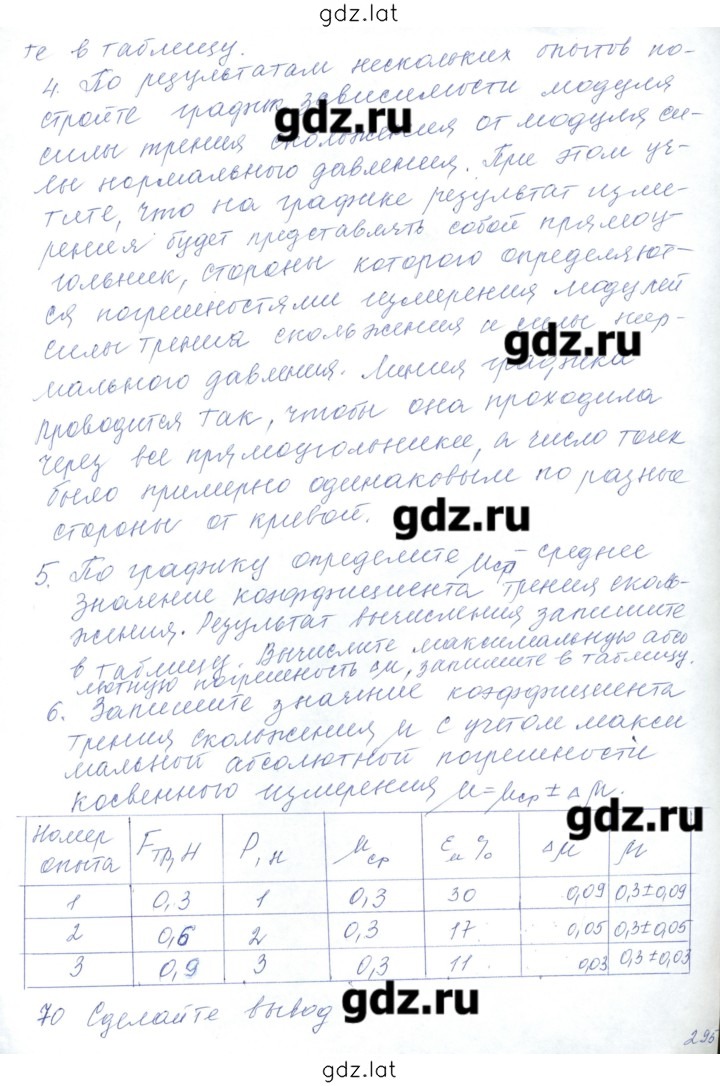 gdz.lat
те в таблицу.
4. По результатам нескольких опытов по-
стройте график зависимости модуля
gdz.ru
силы трения скольжения от модуля си-
лы нормального давления. При этом уч-
тите, что на графике результат изме-
рения будет представлять собой прямоу-
гольник, стороны которого определяют-
ся погрешностями измерения модулей
силы трения скольжения и силы нор-
gdz.ru
мального давления. Линия графика
проводится так, чтобы она проходила
через все прямоугольники, а число точек
было примерно одинаковым по разные
стороны от кривой.
gdz.ru
5. По графику определите μср – среднее
значение коэффициента трения сколь-
жения. Результат вычисления запишите
в таблицу. Вычислите максимальную абсо
лютную погрешность см, запишите в таблицу.
6. Запишите значение коэффициента
трения скольжения μ с учетом макси
мальной абсолютной погрешности
косвенного измерения μ=μср ± Δμ.
gdz.ru
Номер опыта Fтр, Н P, Н μср εμ % Δμ μ
1 0,3 1 0,3 30 0,09 0,3±0,09
2 0,6 2 0,3 17 0,05 0,3±0,05
3 0,9 3 0,3 11 0,03 0,3±0,03
70 Сделайте вывод
gdz.ru
295
gdz.lat